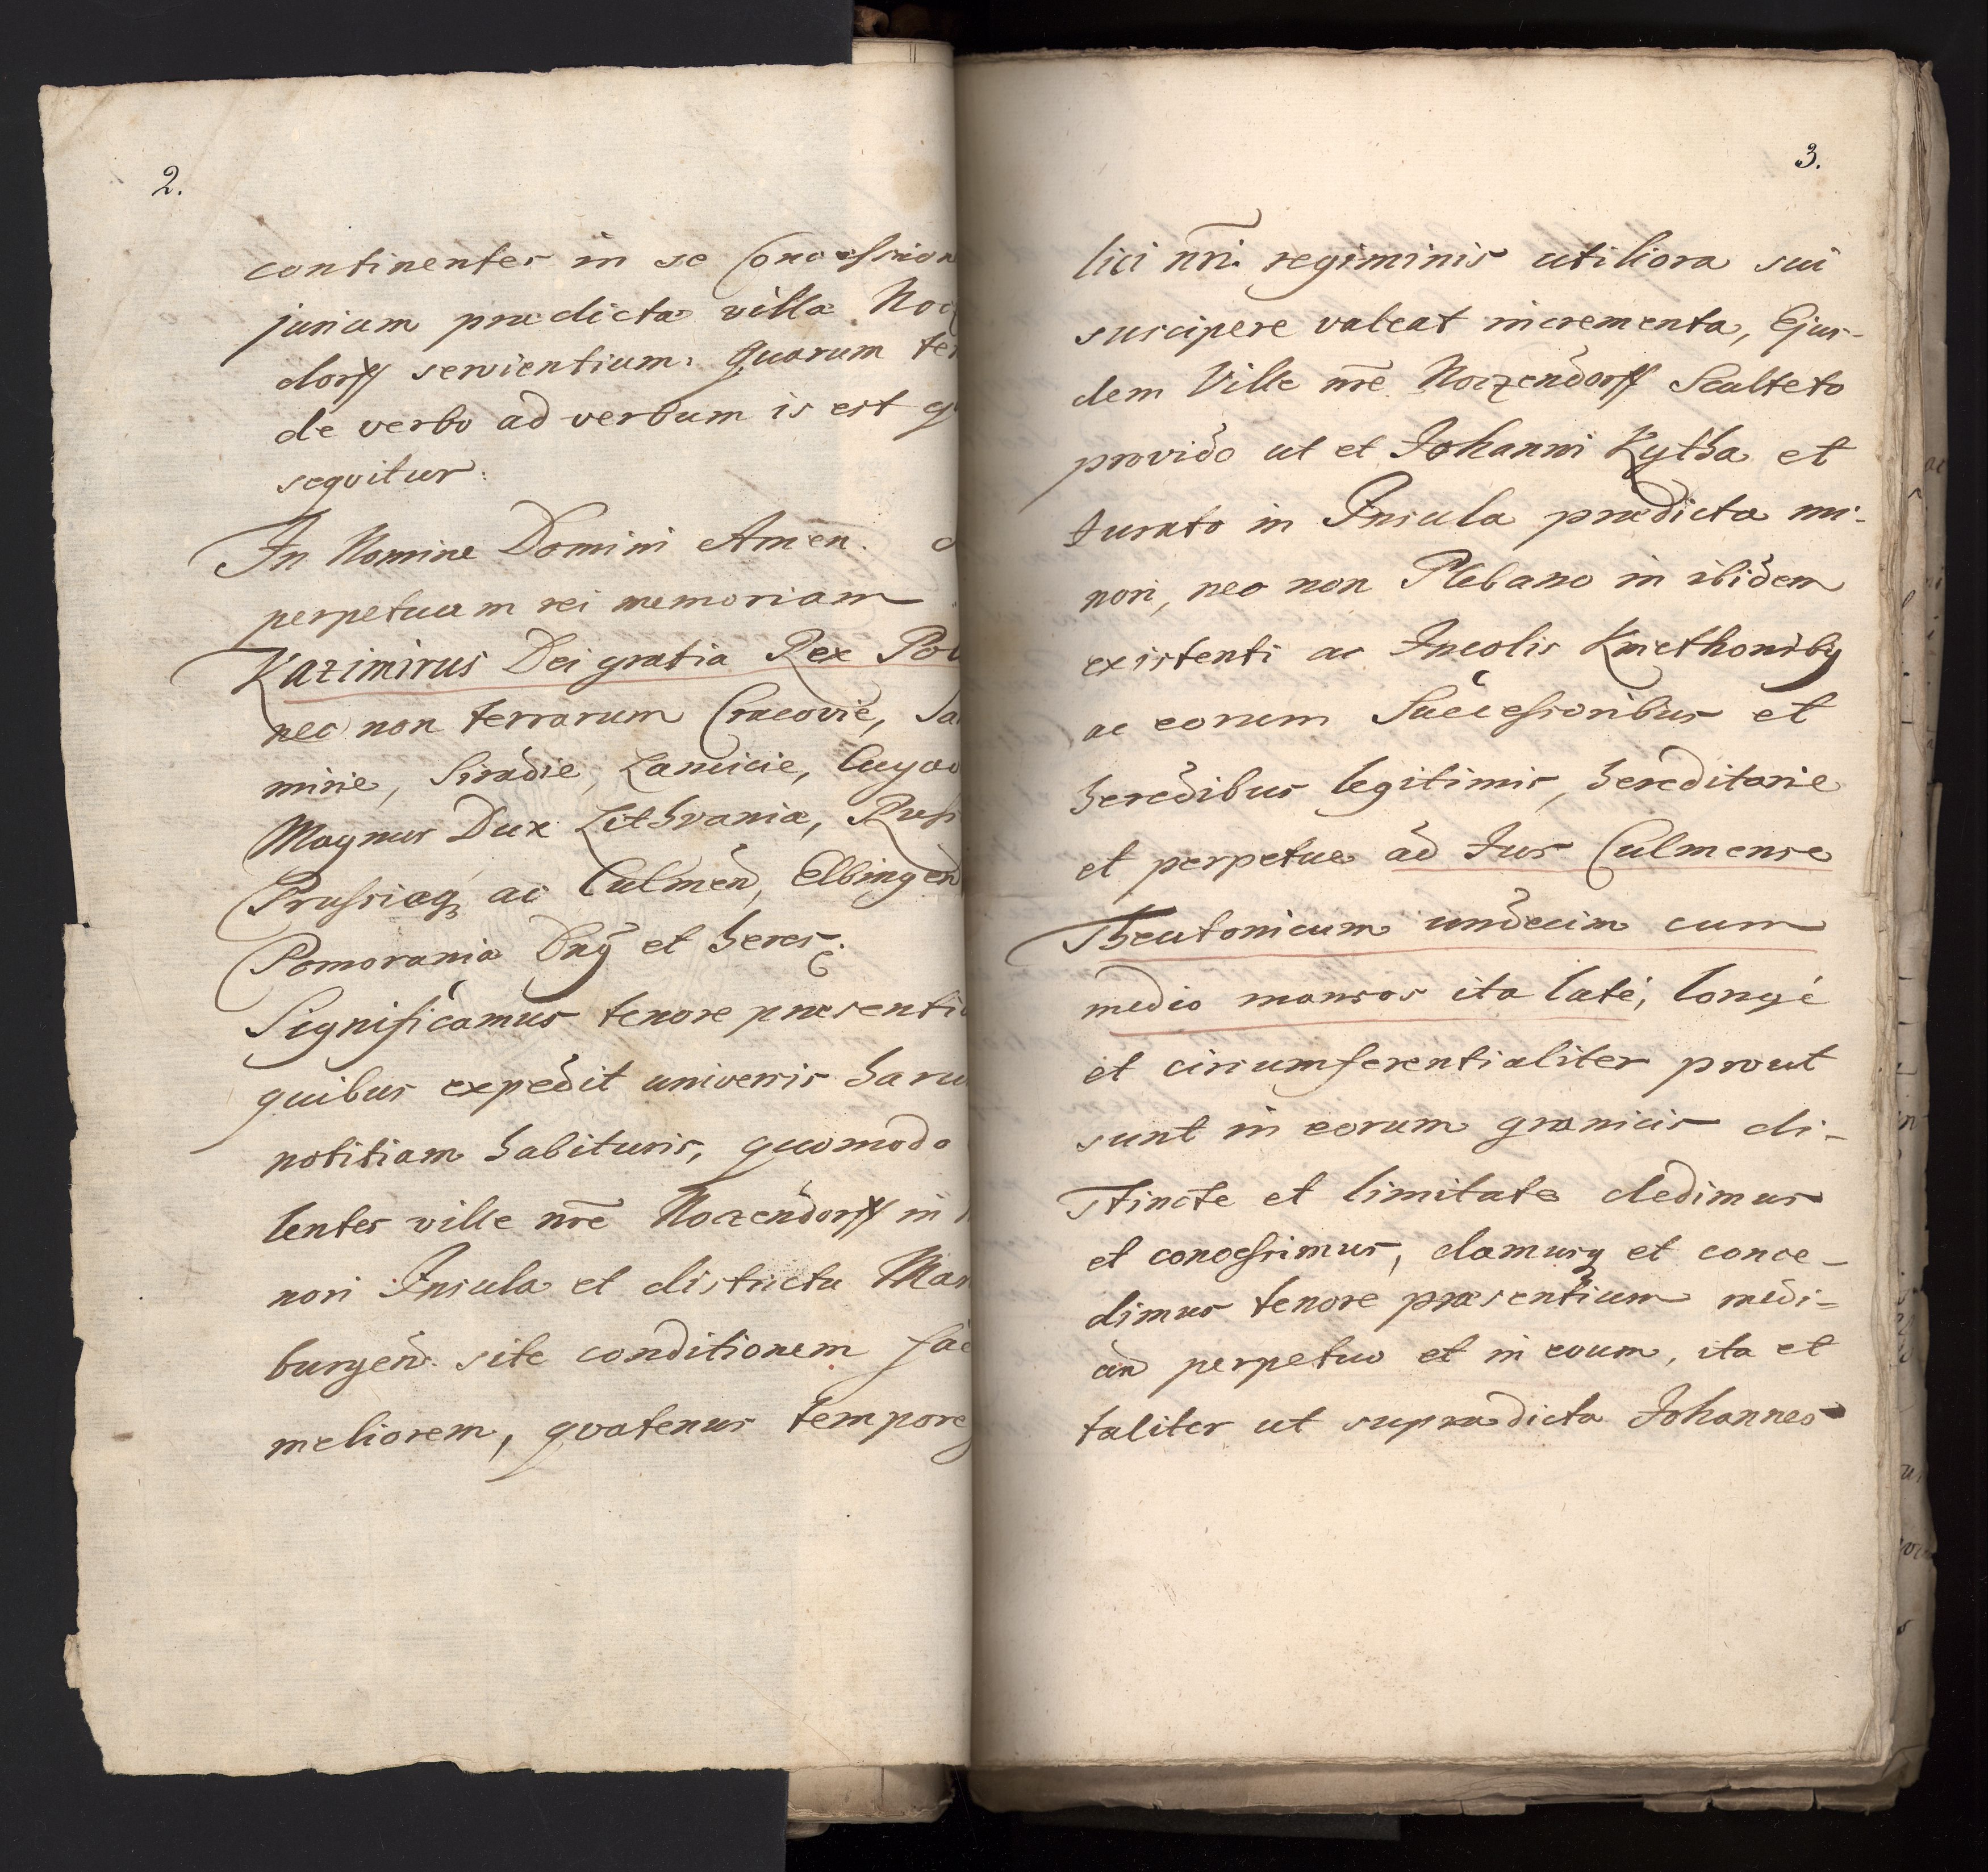 2.
continentes in se Concession
juriam prædicta villa Nocz
dorff servientium. Quarum te
de verbo ad verbum is est q
seqvitur.
In Nomine Domini Amen.
perpetuam rei memoriam
Kazimirus Dei gratia Rex Pol
nec non terrarum Cracovie, Sa
mirie, Siradie, Lancicie, Cuyav
Magnus Dux Lithvaniæ, Russ
Prussiæq ac Culmeñ, Elbingeñ
Pomorania Dnỹ et heres.
Significamus tenore præsenti
quibus expedit universis haru
notitiam habituris, quomodo
lentes ville nr̃e Noczendorff in
nori Insula et districtu Mar
burgeñ. site conditionem fac
meliorem, qvatenus tempore
3.
lici nr̃i regiminis utiliora sui
suscipere valeat incrementa, Ejus-
dem Ville nr̃e Noczendorff Sculteto
provido ut et Johanni Kytha et
Jurato in Insula prædicta mi-
nori, nec non Plebano in ibidem
existenti ac Incolis Kmethonibq
ac eorum Successoribus et
heredibus legitimis, hereditarie
et perpetue ad Jus Culmense
Theutonicum undecim cum
medio mansos ita laté, longé
et circumferentialiter prout
sunt in eorum granicis di-
stincte et limitate dedimus
et concessimus, damusq et conce-
dimus tenore præsentium medi=
añ perpetuo et in evum, ita et
taliter ut supradicta Johannes